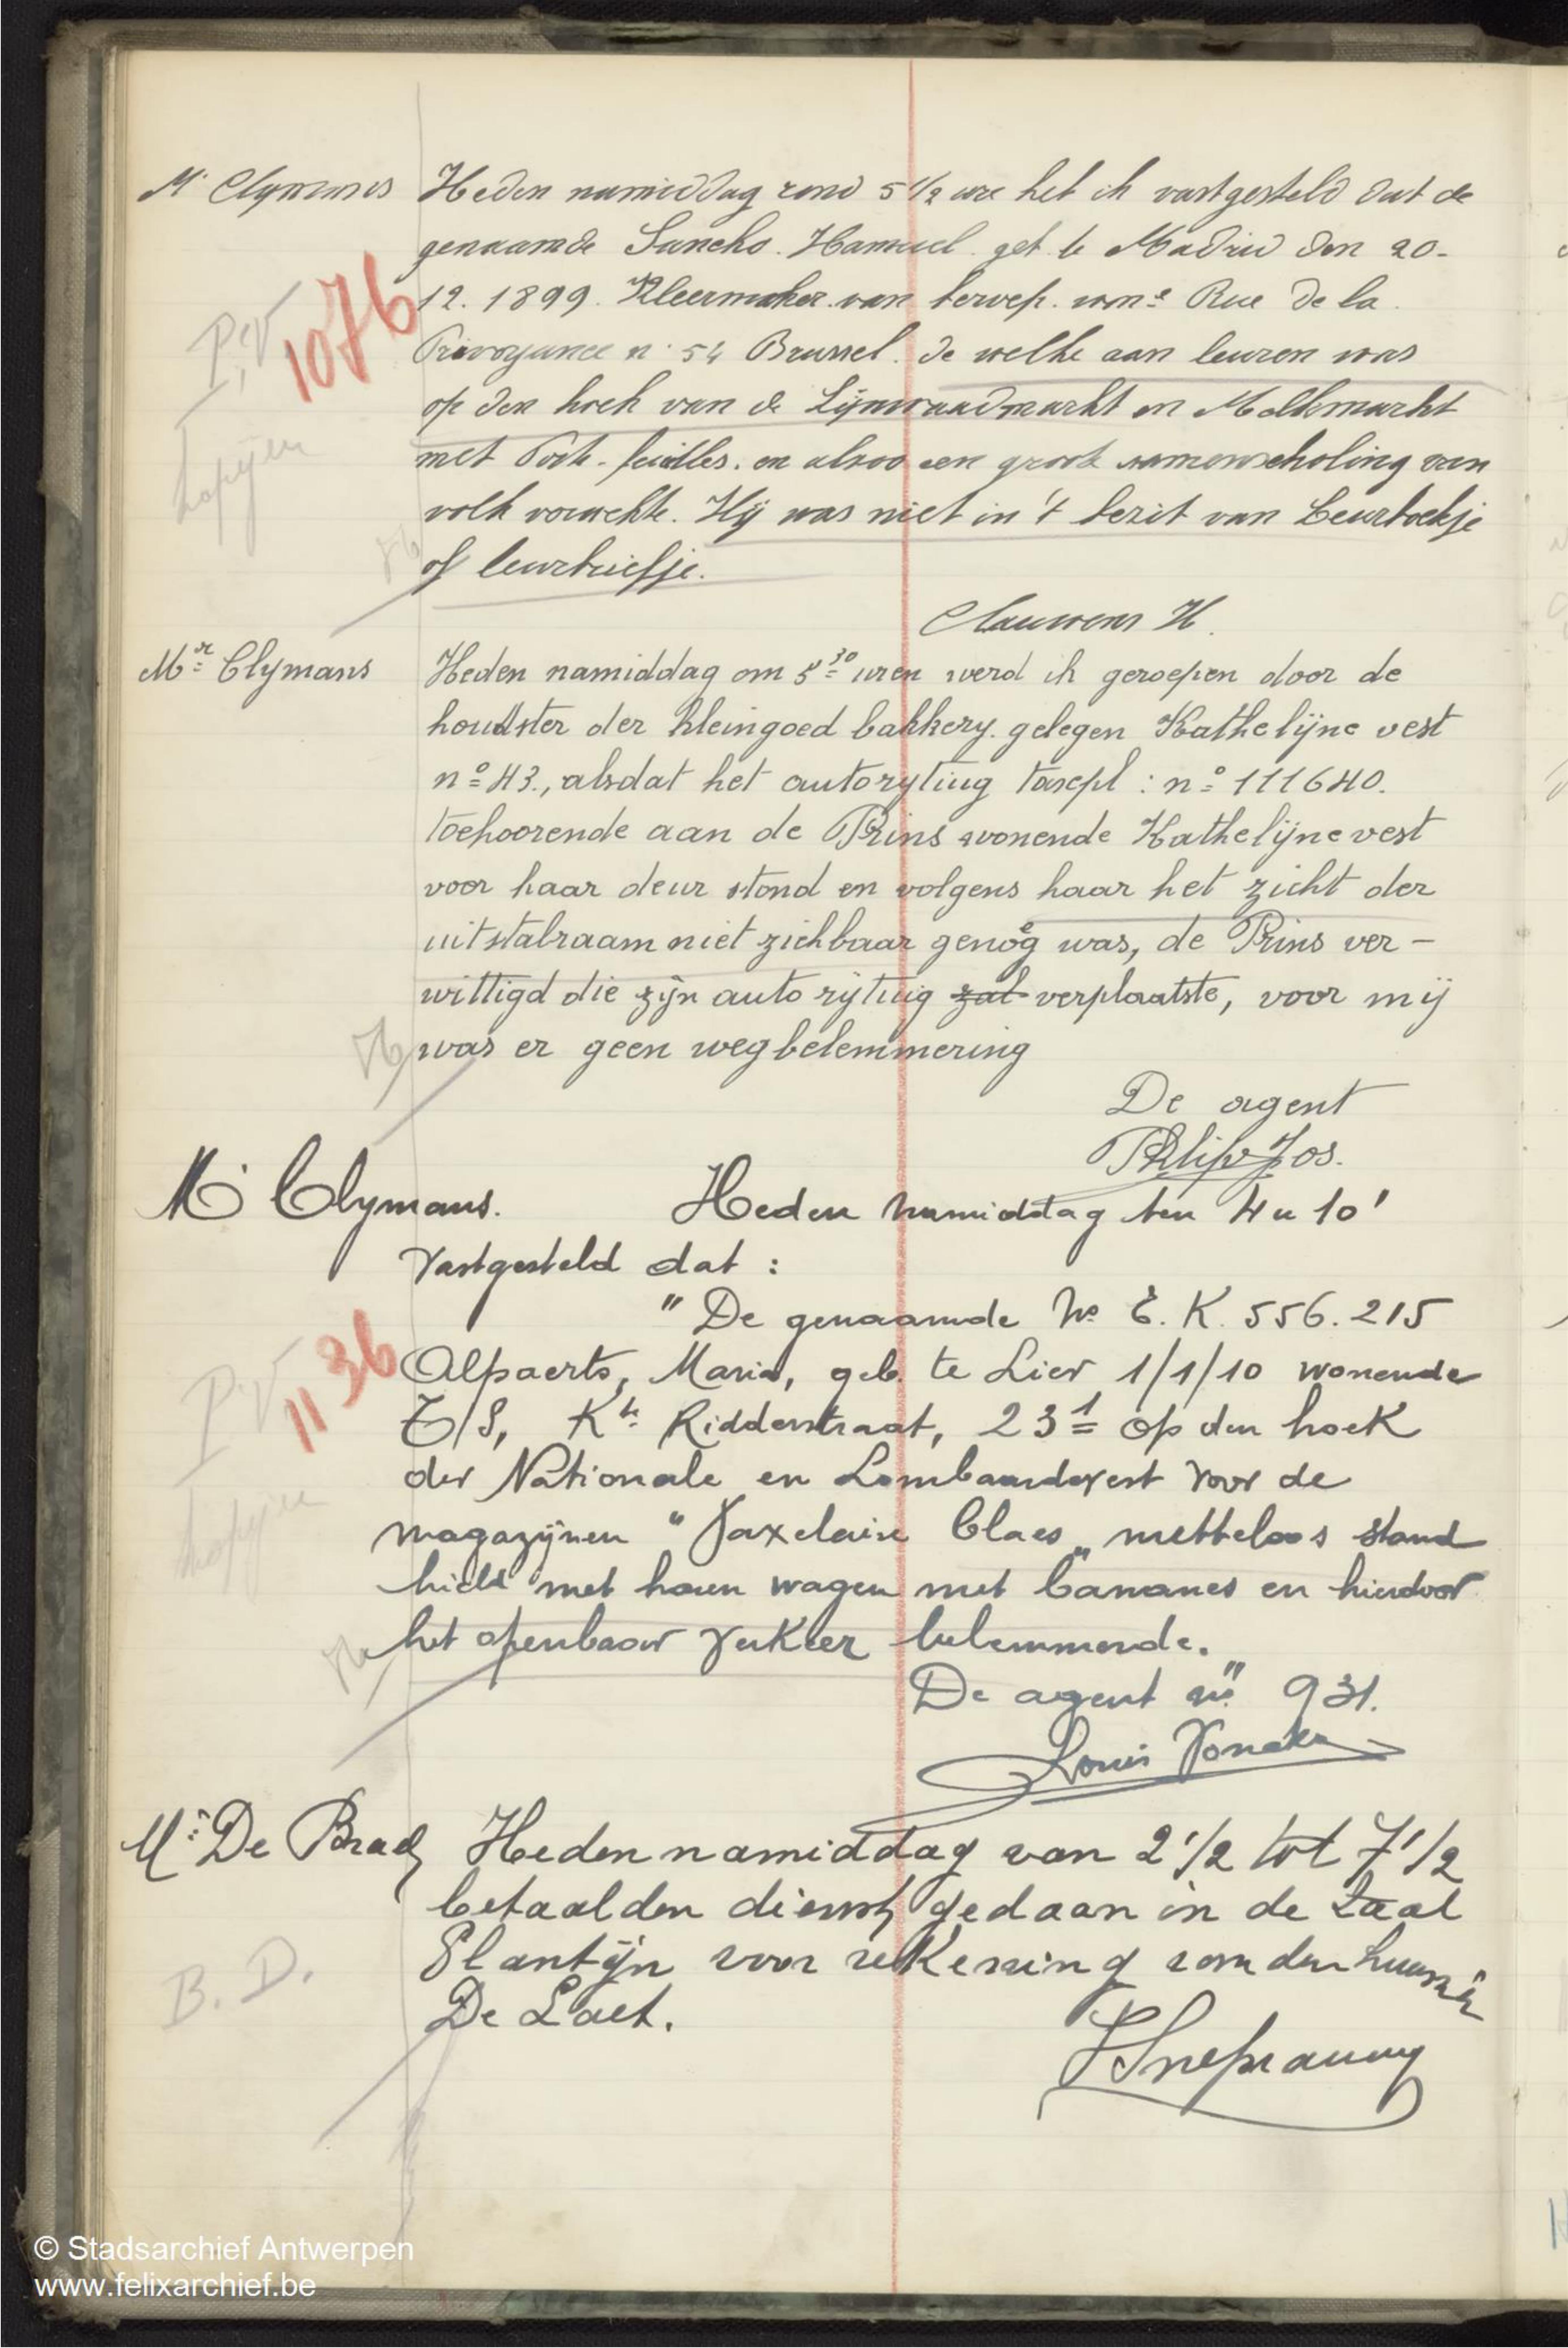 Mr Clymans Heden namiddag rond 5 1/2 ure heb ik vastgesteld dat de
genaamde Sancho. Hamuel. geb. te Madrid den 20-
12. 1899. Kleermaker van beroep. won.e Rue de la
P.V. 1076
Prevoyance n. 54 Brussel. de welke aan leuren was
op den hoek van de Lijnwaadmarkt en Melkmarkt
kopijen
met Porte-feuilles. en alsoo een groote samenscholing van
volk verwekte. Hij was niet in 't bezit van Leurboekje
of leurbriefje.
Clauwens H.
Mr Clymans Heden namiddag om 5 30 uren werd ik geroepen door de
houdster der kleingoed bakkery. gelegen Kathelijne vest
no 43., alsdat het autorytuig taxepl: no 111640.
toehoorende aan de Prins wonende Kathelijnevest
voor haar deur stond en volgens haar het zicht der
uitstalraam niet zichbaar genoeg was, de Prins ver-
wittigd die zijn auto rijtuig zal verplaatste, voor mij
was er geen wegbelemmering
De agent
Philips Jos.
Mr Clymans. Heden namiddag ten 4 u 10'
Vastgesteld dat :
"De genaamde No E.K. 556.215
P.V. 1136
Alpaerts, Maria, geb. te Lier 1/1/10 wonende
T/S, Kte Ridderstraat, 23 1 op den hoek
der Nationale en Lombaardevest voor de
kopijen
magazijnen "Vaxelaire Claes" nutteloos stand
hield met haren wagen met bananes en hierdoor
het openbaar verkeer belemmerde.
De agent no" 931.
Louis Voncke
Mr De Brae Heden namiddag van 2 1/2 tot 7 1/2
betaalden dienst gedaan in de zaal
Plantijn voor rekening van den huurder
B. D.
De Laet.
© Stadsarchief Antwerpen
www.felixarchief.be